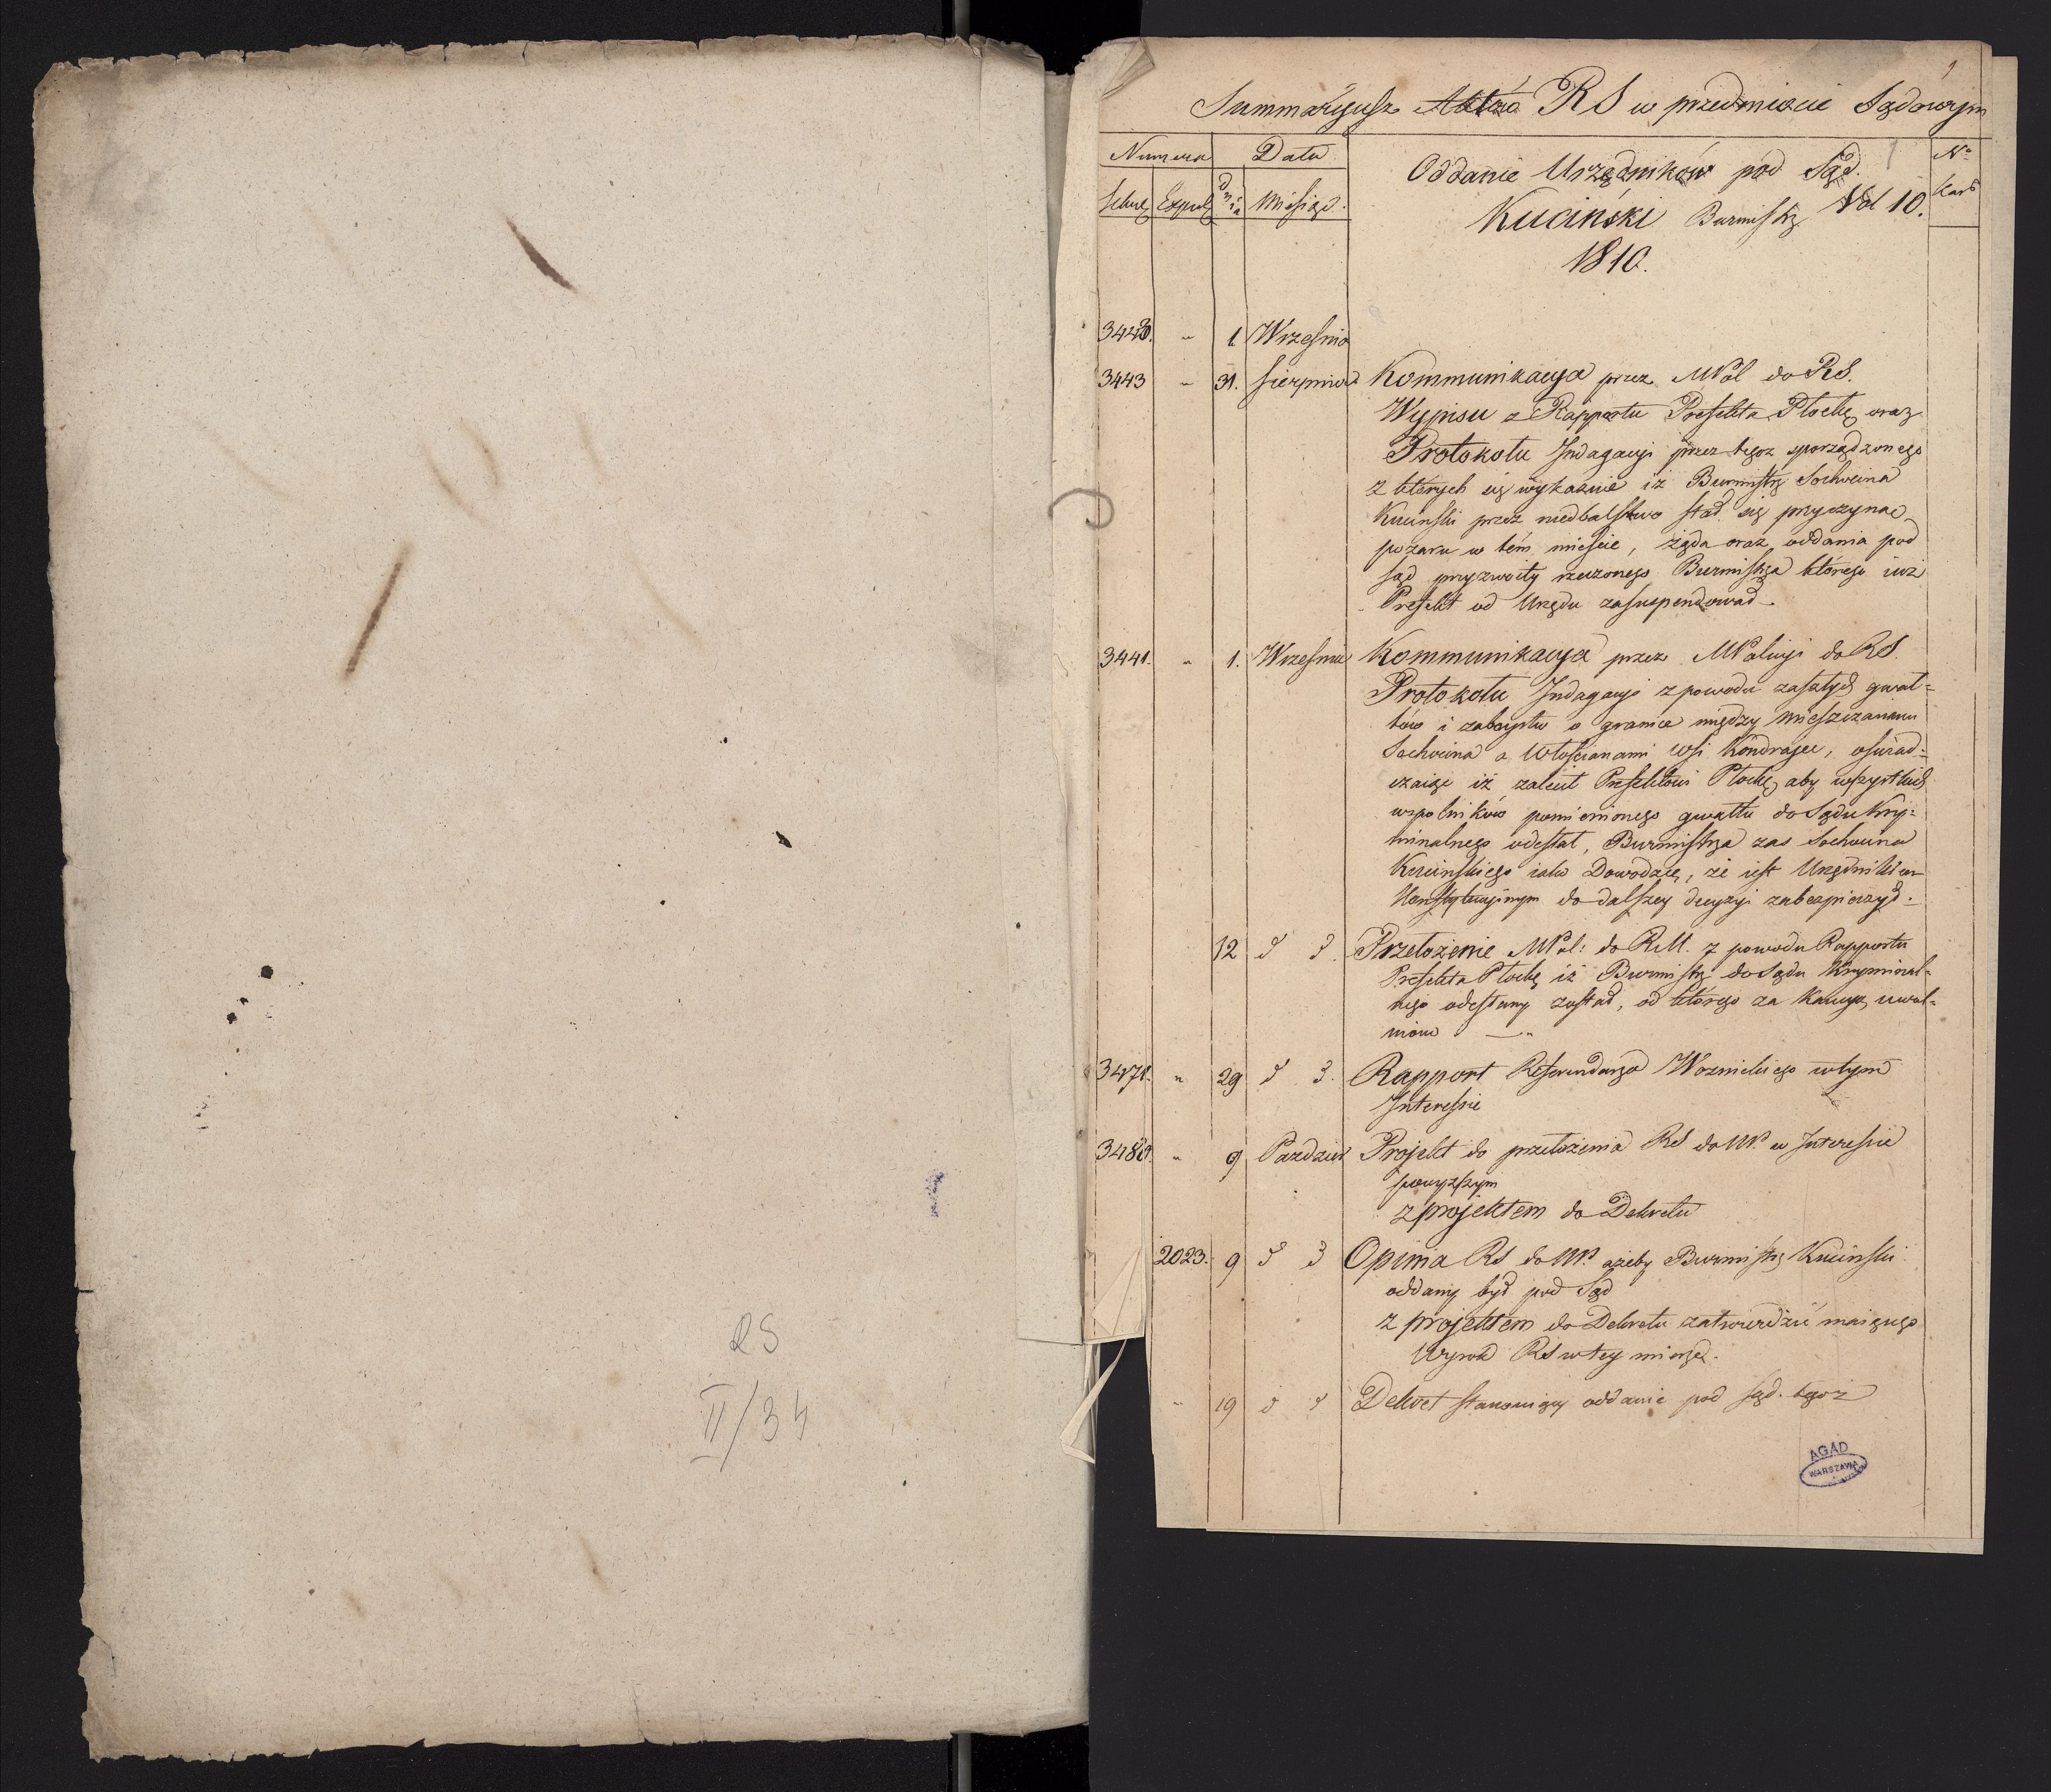 RS
II/34
1
Summaryusz Aktów RS w przedmiocie Sądowym
Numera Data Oddanie Urzędników pod Sąd. No
dnia Miesiąc. Kuciński Burmistrz Vol 10. Kart
1810.
3443. " 1. Wrzesnia
3443 " 31. Sierpnia Kommunikacya przez MPol do RS.
Wypisu z Rapportu Prefekta Płocke oraz
Protokołu Indagacyi przez tegoz sporządzonego
z których się wykazuie iz Burmistrz Sochocina
Kucinski przez niedbalstwo stał się przyczyną
pozaru w tém miescie, żąda oraz oddania pod
sąd przyzwoity rzeczonego Burmistrza którego iuż
Prefekt od Urzędu zasuspendował.
3441. " 1. Wrzesnia Kommunikacya przez MPolicyi do RS.
Protokołu Indagacyi z powodu zaszłych gwał=
tów i zaboystw o granice między Mieszczanami
Sochocina a Włoscianami wsi Kondrajec, oswiad=
czaiąc iż zalecił Prefektowi Płocke, aby wszystkich
wspolników pomienionego gwałtu do Sądu Kry=
minalnego odesłał, Burmistrza zas Sochocina
Kucinskiego iako Dowodzcę, że iest Urzędnikiem
Konstytucyinym do dalszey decyzyi zabezpieczył.
12 d d. Przełożenie MPol: do RM. z powodu Rapportu
Prefekta Płocke iż Burmistrz do Sądu Kryminal=
nego odesłany został, od którego za Kaucyą uwol=
niony
3471. " 29 d d. Rapport Referendarza Woznickiego w tym
Interessie
3480. " 9 Pazdzier Projekt do przełożenia RS do NP. w Interessie
powyzszym
z projektem do Dekretu
2023. 9 d d Opinia RS do NP. azeby Burmistrz Kucinski
oddany był pod Sąd
z projektem do Dekretu zatwierdzić maiącego
Wyrok RS w tey mierze.
" 19 d d Dekret stanowiący oddanie pod sąd tegoż
AGAD
WARSZAWA